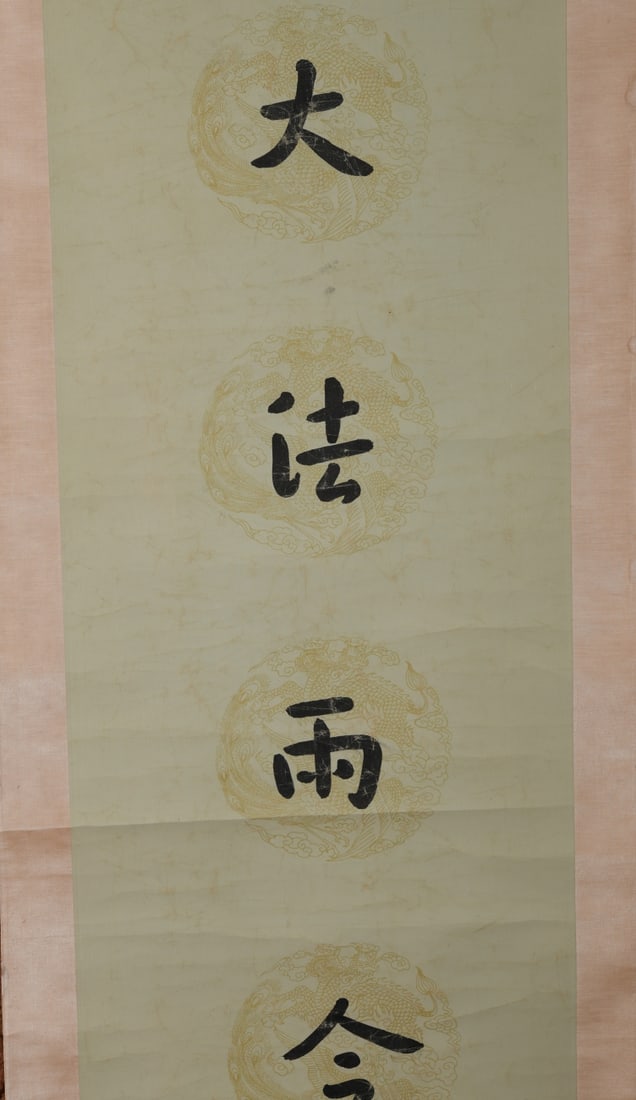 大法雨